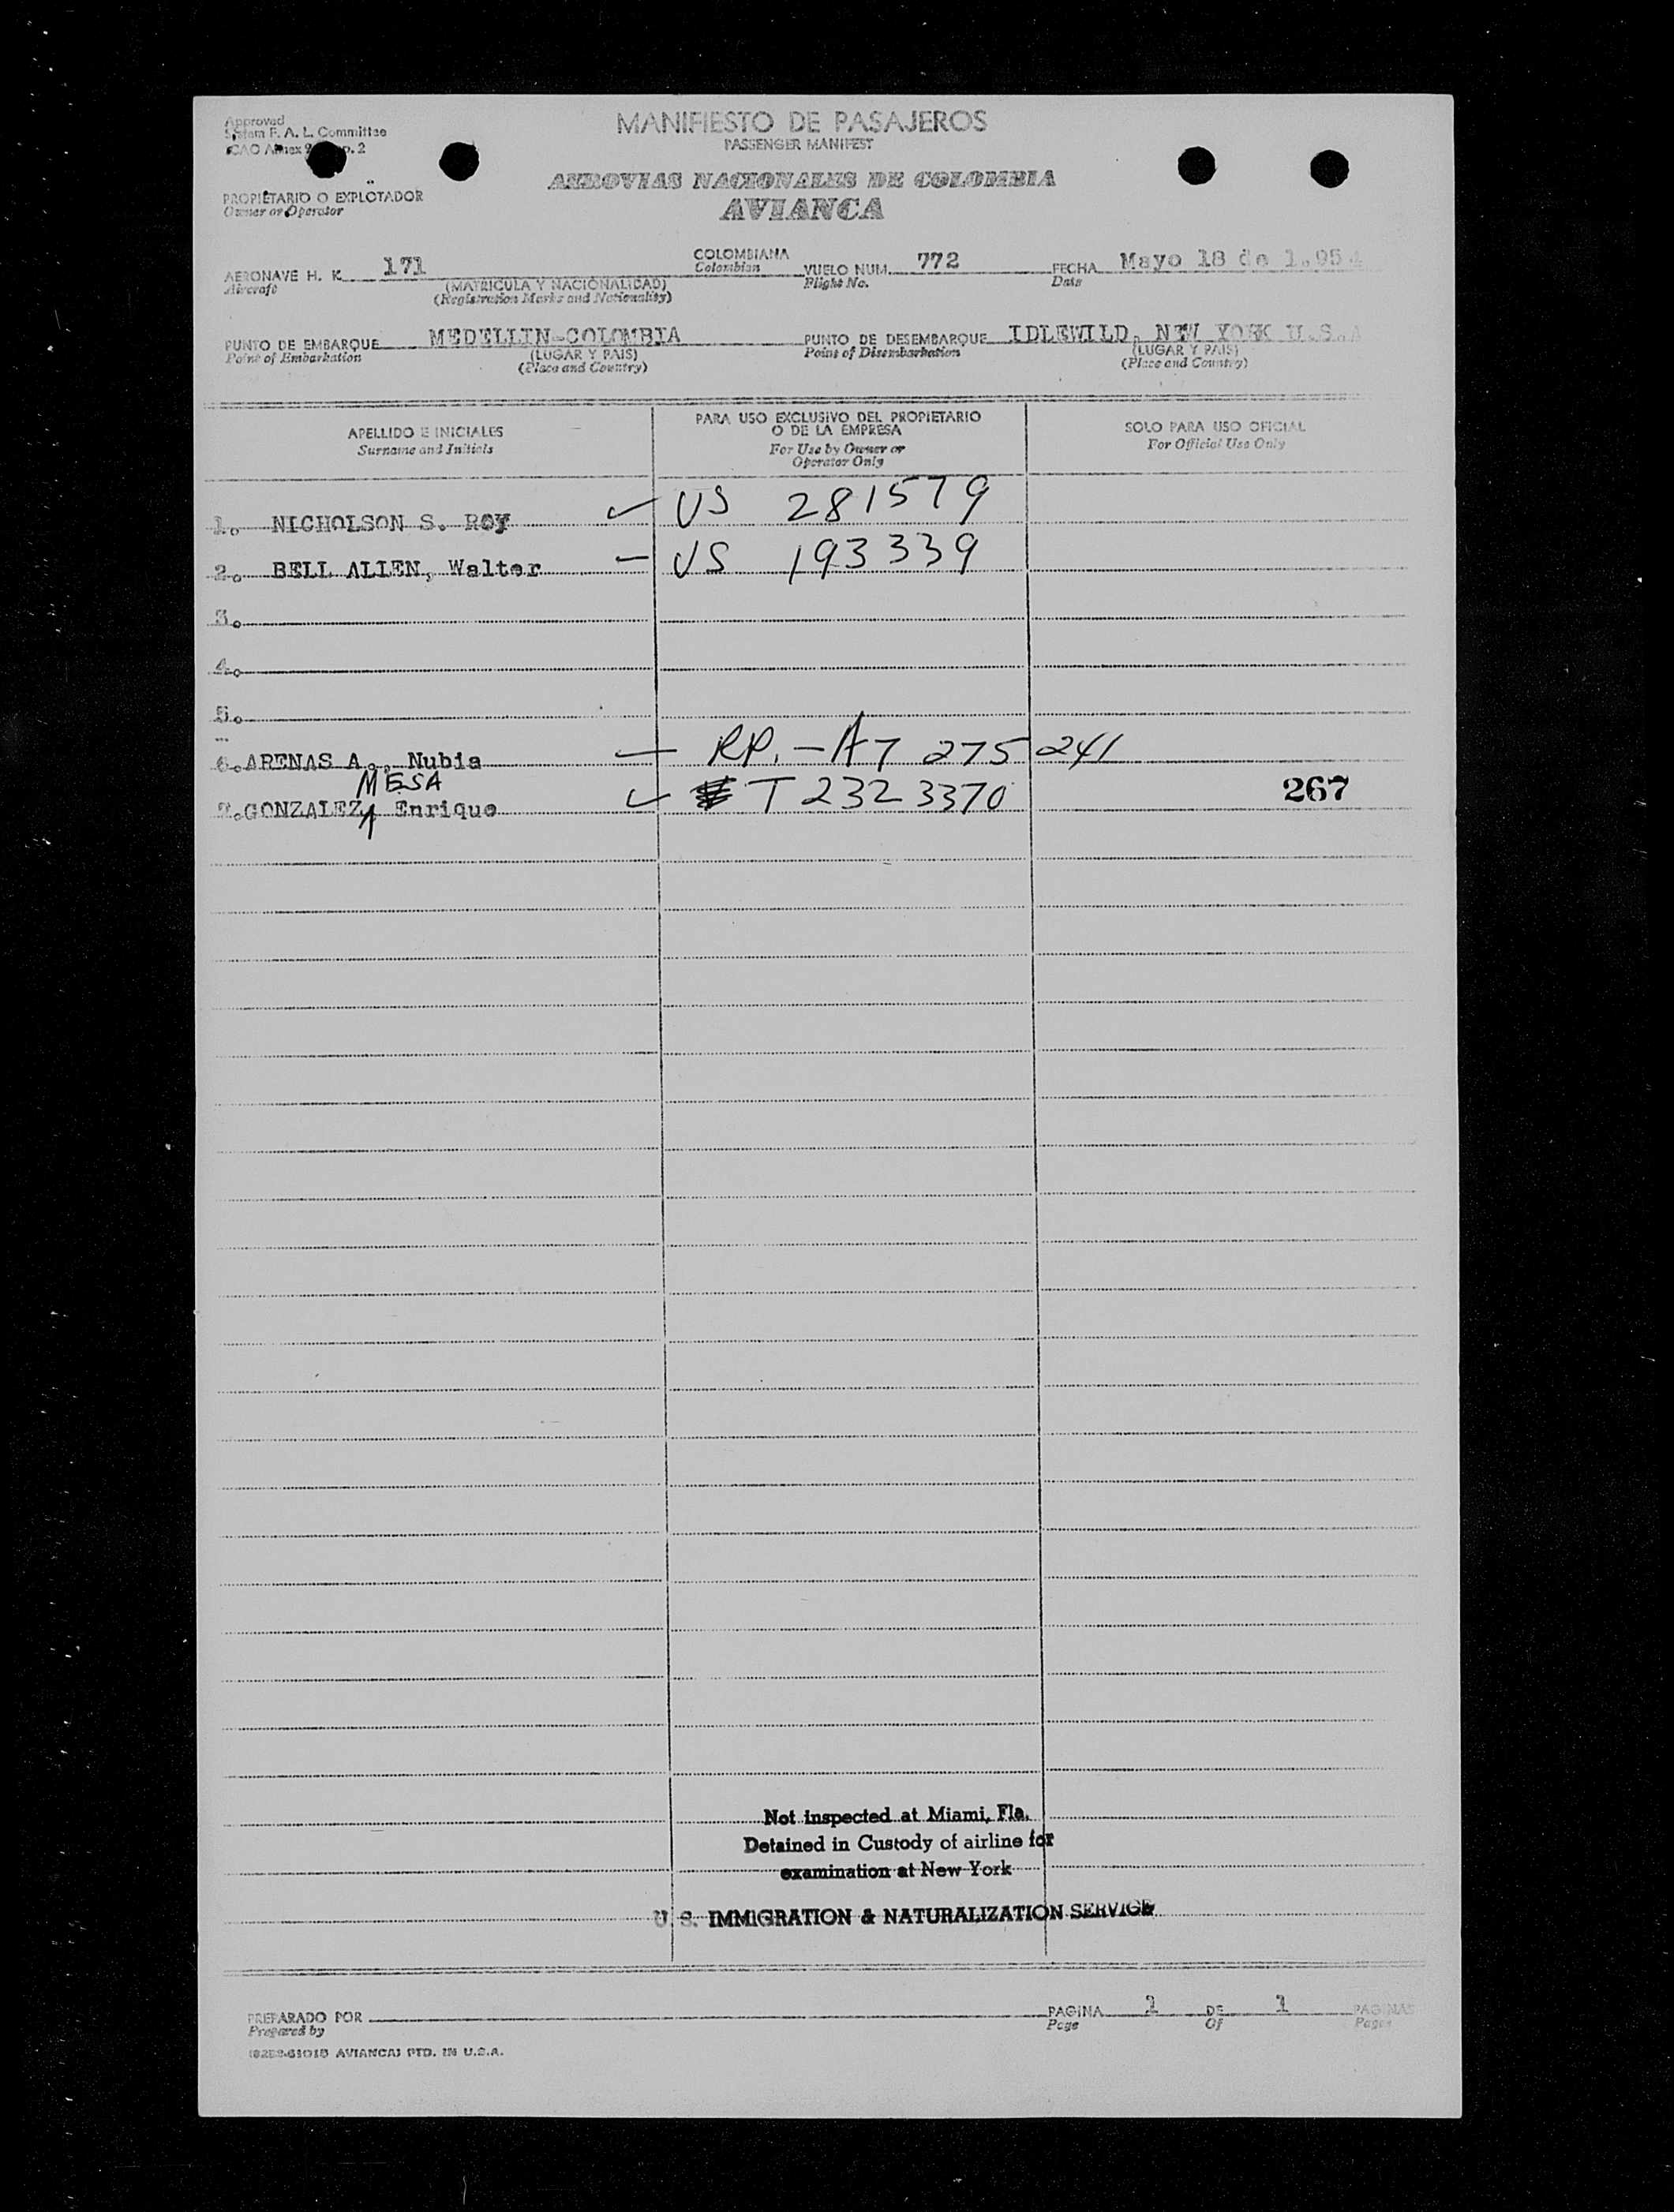 Approved
System F. A. L. Committee
ICAO Annex 9
p. 2
MANIFIESTO DE PASAJEROS
PASSENGER MANIFEST
AEROVIAS NACIONALES DE COLOMBIA
AVIANCA
PROPIETARIO O EXPLOTADOR
Owner or Operator
AERONAVE H. K. 171 COLOMBIANA VUELO NUM. 772 FECHA Mayo 18 de 1.954
Aircraft (MATRICULA Y NACIONALIDAD) Colombian Flight No. Date
(Registration Marks and Nationality)
PUNTO DE EMBARQUE MEDELLIN-COLOMBIA PUNTO DE DESEMBARQUE IDLEWILD, NEW YORK U.S.A
Point of Embarkation (LUGAR Y PAIS) Point of Disembarkation (LUGAR Y PAIS)
(Place and Country) (Place and Country)
APELLIDO E INICIALES
Surname and Initials
PARA USO EXCLUSIVO DEL PROPIETARIO
O DE LA EMPRESA
For Use by Owner or
Operator Only
SOLO PARA USO OFICIAL
For Official Use Only
1. NICHOLSON S. ROY US 281579
2. BELL ALLEN, Walter US 193339
3.
4.
5.
6. ARENAS A., Nubia RP. - A7 275 241
MESA
7. GONZALEZ, Enrique T 232 3370 267
Not inspected at Miami, Fla.
Detained in Custody of airline for
examination at New York
U. S. IMMIGRATION & NATURALIZATION SERVICE
PREPARADO POR PAGINA 1 DE 1 PAGINAS
Prepared by Page Of Pages
AVIANCA) PTD. IN U.S.A.